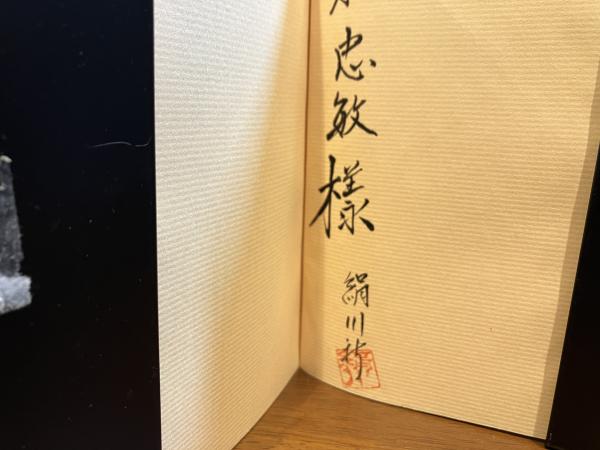 忠敏様
絹川